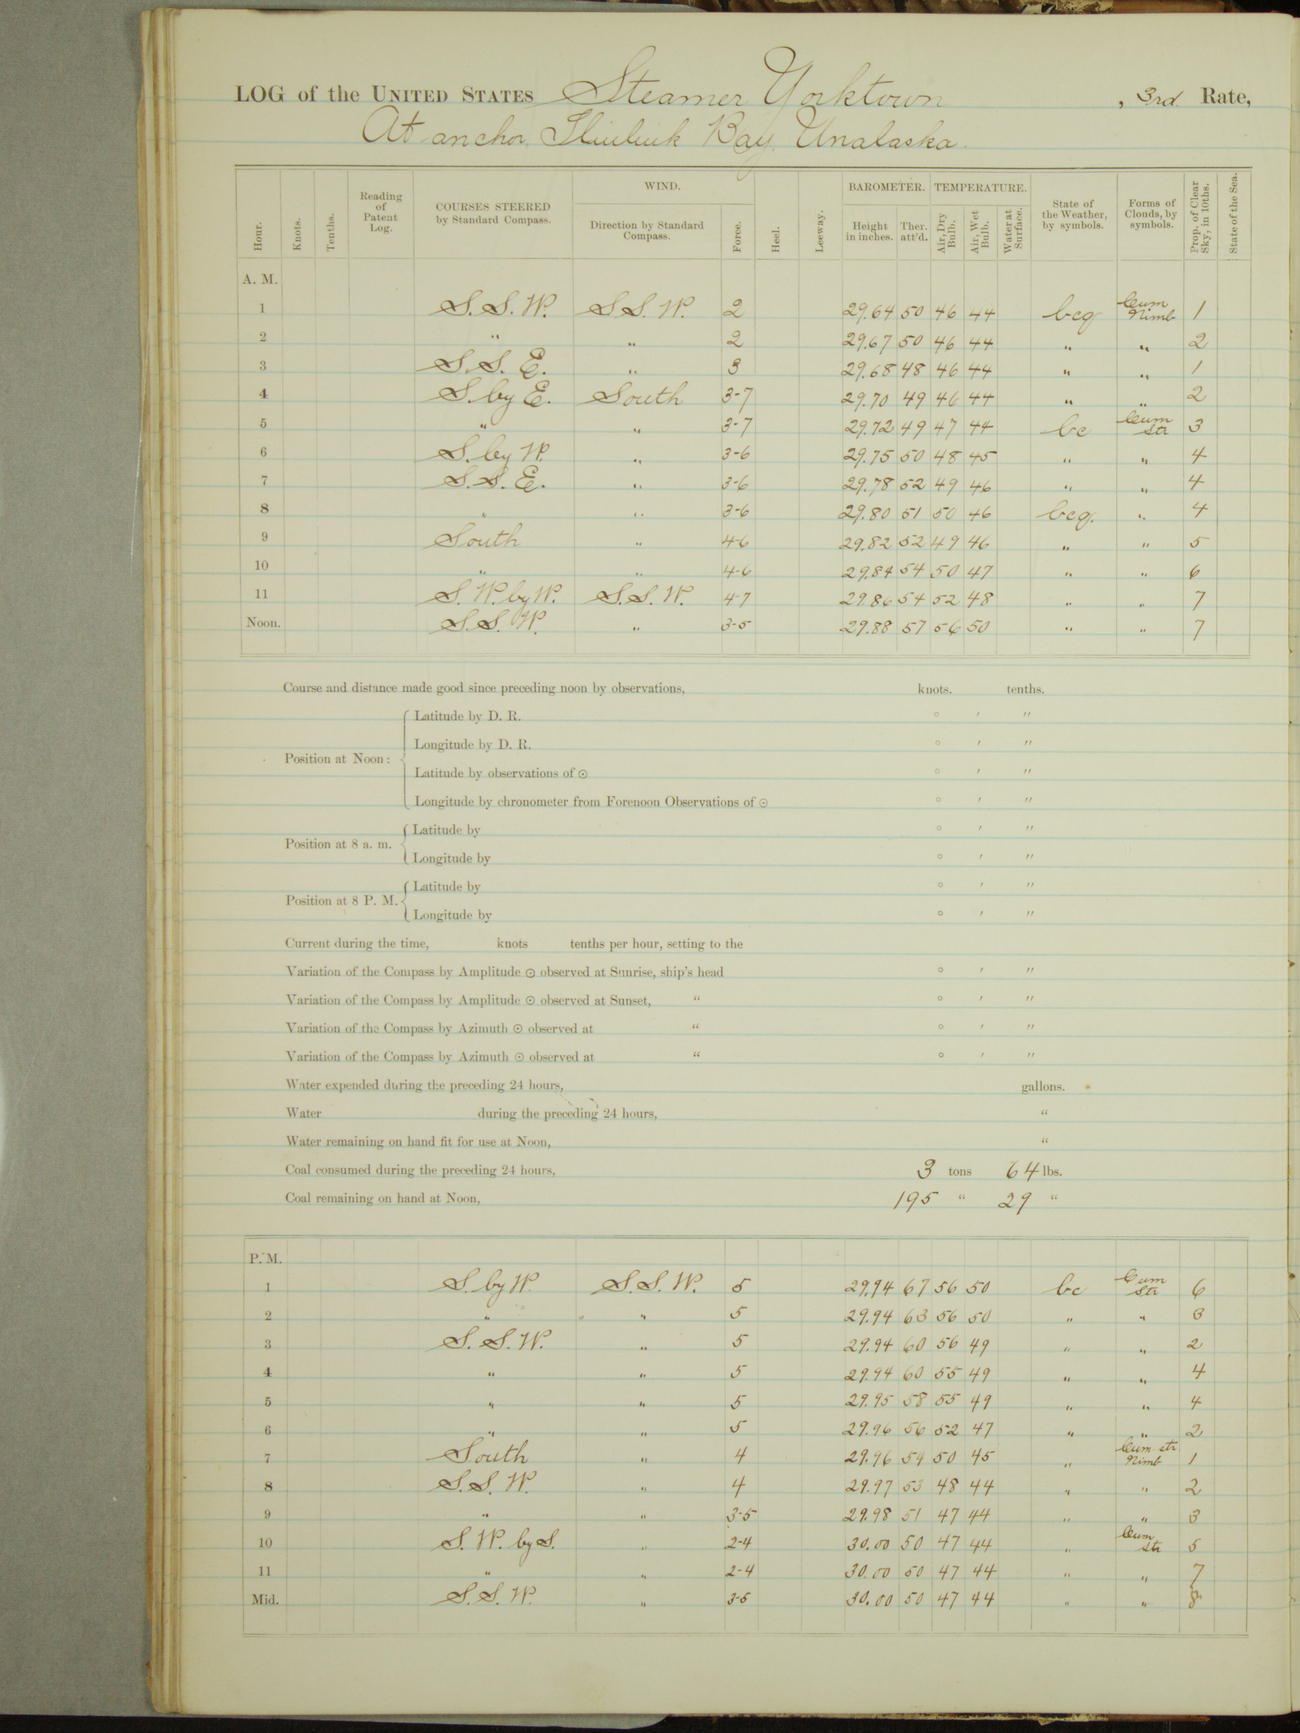 LOG of the UNITED STATES Steamer Yorktown, 3rd Rate,
At anchor, Iliuliuk Bay, Unalaska.
Hour. Knots. Tenths. Reading of Patent Log. COURSES STEERED by Standard Compass. WIND. Direction by Standard Compass. Force. Heel. Leeway. BAROMETER. Height in inches. Ther. att'd. TEMPERATURE. Air, Dry Bulb. Air, Wet Bulb. Water at Surface. State of the Weather, by symbols. Forms of Clouds, by symbols. Prop. of Clear Sky, in 10ths. State of the Sea.
A. M.
1 S. S. W. S. S. W. 2 29.64 50 46 44 bcq Cum Nimb 1
2 " " 2 29.67 50 46 44 " " 2
3 S. S. E. " 3 29.68 48 46 44 " " 1
4 S. by E. South 3-7 29.70 49 46 44 " " 2
5 " " 3-7 29.72 49 47 44 bc Cum Str 3
6 S. by W. " 3-6 29.75 50 48 45 " " 4
7 S. S. E. " 3-6 29.78 52 49 46 " " 4
8 " " 3-6 29.80 51 50 46 bcq. " 4
9 South " 4-6 29.82 52 49 46 " " 5
10 " " 4-6 29.84 54 50 47 " " 6
11 S. W. by W. S. S. W. 4-7 29.86 54 52 48 " " 7
Noon. S. S. W. " 3-5 29.88 57 56 50 " " 7
Course and distance made good since preceding noon by observations, knots. tenths.
Latitude by D. R. ° ′ ″
Longitude by D. R. ° ′ ″
Position at Noon:
Latitude by observations of ⊙ ° ′ ″
Longitude by chronometer from Forenoon Observations of ⊙ ° ′ ″
Latitude by ° ′ ″
Position at 8 a. m.
Longitude by ° ′ ″
Latitude by ° ′ ″
Position at 8 P. M.
Longitude by ° ′ ″
Current during the time, knots tenths per hour, setting to the
Variation of the Compass by Amplitude ⊙ observed at Sunrise, ship's head ° ′ ″
Variation of the Compass by Amplitude ⊙ observed at Sunset, " ° ′ ″
Variation of the Compass by Azimuth ⊙ observed at " ° ′ ″
Variation of the Compass by Azimuth ⊙ observed at " ° ′ ″
Water expended during the preceding 24 hours, gallons.
Water during the preceding 24 hours, "
Water remaining on hand fit for use at Noon, "
Coal consumed during the preceding 24 hours, 3 tons 64 lbs.
Coal remaining on hand at Noon, 195 " 29 "
P. M.
1 S. by W. S. S. W. 5 29.94 67 56 50 bc Cum Str 6
2 " " 5 29.94 63 56 50 " " 3
3 S. S. W. " 5 29.94 60 56 49 " " 2
4 " " 5 29.94 60 55 49 " " 4
5 " " 5 29.95 58 55 49 " " 4
6 " " 5 29.96 56 52 47 " " 2
7 South " 4 29.96 54 50 45 " Cum str Nimb 1
8 S. S. W. " 4 29.97 53 48 44 " " 2
9 " " 3-5 29.98 51 47 44 " " 3
10 S. W. by S. " 2-4 30.00 50 47 44 " Cum str 5
11 " " 2-4 30.00 50 47 44 " " 7
Mid. S. S. W. " 3-5 30.00 50 47 44 " " 8